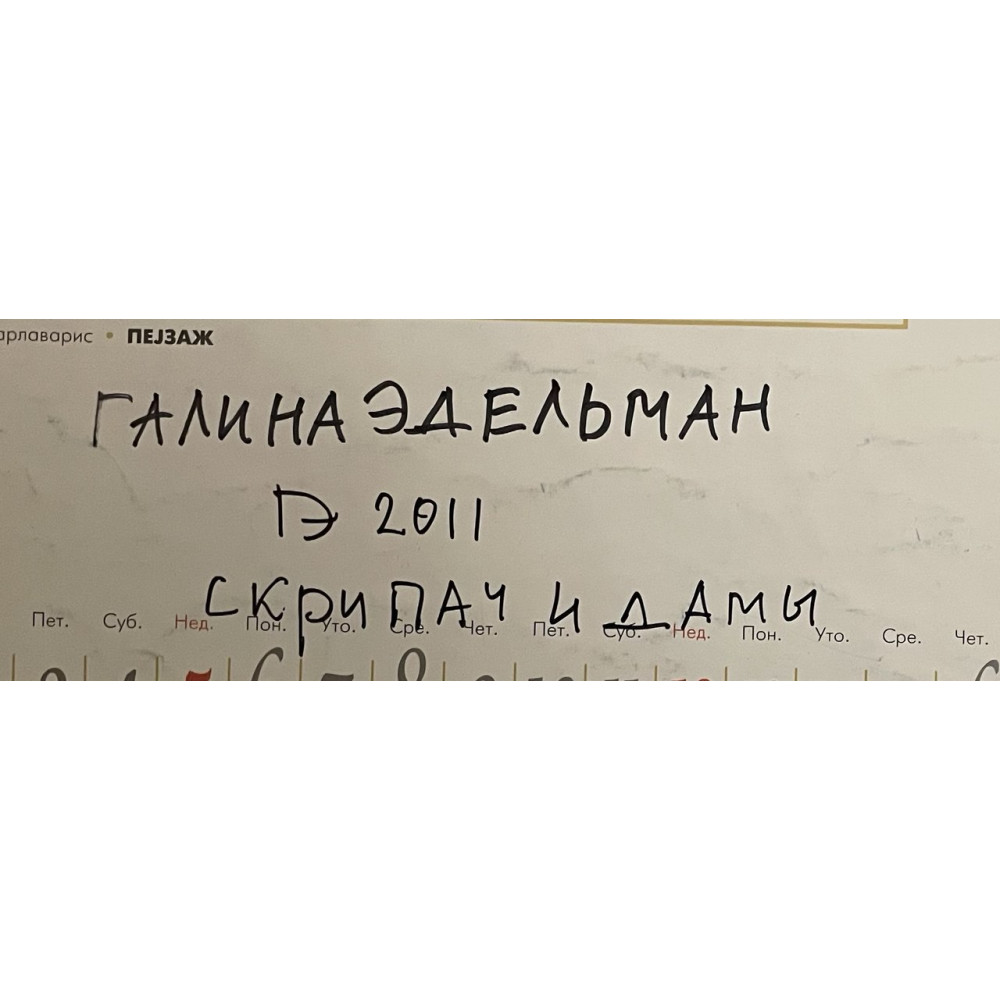 • ПЕЈЗАЖ
ГАЛИНА ЭДЕЛЬМАН
ГЭ 2011
СКРИПАЧ И ДАМЫ
Пет. Суб. Нед. Пон. Уто. Сре. Чет. Пет. Суб. Нед. Пон. Уто. Сре. Чет.